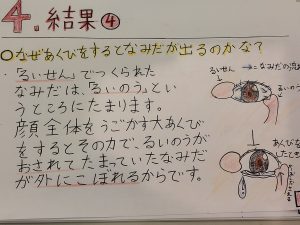 4.結果④
○なぜあくびをするとなみだが出るのかな?
・「るいせん」でつくられた
なみだは、「るいのう」とい
うところにたまります。
顔全体をうごかす大あくび
をするとその力で、るいのうが
おされてたまっていたなみだ
が外にこぼれるからです。
るいせん
→なみだの流
るいのう
あくびを
したとき